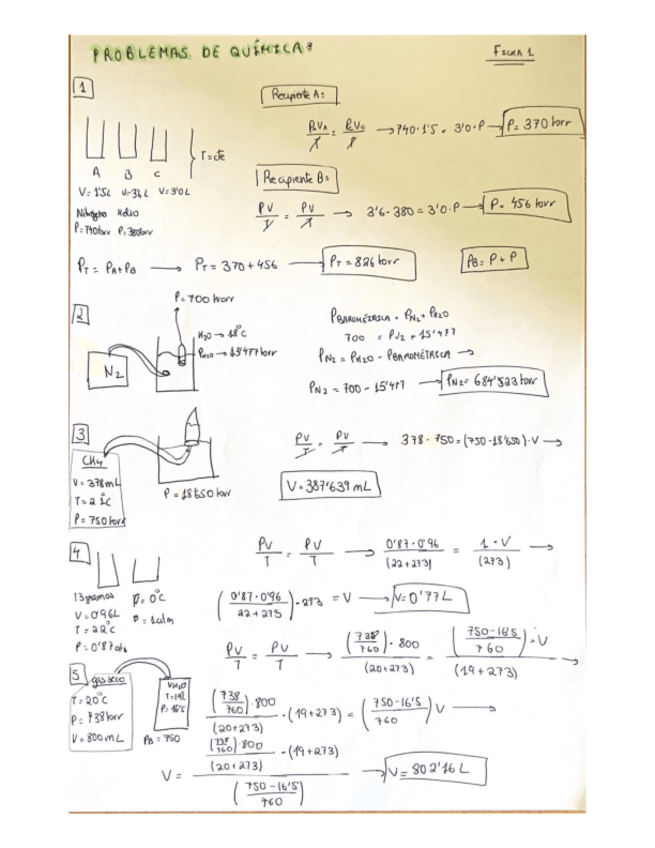 PROBLEMAS DE QUÍMICA:
FICHA 1
1
Recipiente A:
PAVA/T = PCVC/T → 740·1'5 = 3'0·P → P = 370 torr
A B C
T = cte
V = 1'5L V=3'6L V = 3'0L
Nitrógeno Helio
P=740torr P=380torr
Recipiente B:
PV/T = PV/T → 3'6·380 = 3'0·P → P = 456 torr
PT = PA+PB → PT = 370 + 456 → PT = 826 torr
PB = P + P
2
P = 700 torr
H2O → 18°C
PH2O → 15'477 torr
N2
PBAROMÉTRICA = PN2 + PH2O
700 = PN2 + 15'477
PN2 = PH2O - PBAROMÉTRICA →
PN2 = 700 - 15'477 → PN2 = 684'523 torr
3
CH4
V = 378mL
T = 21°C
P = 750torr
P = 18'650 torr
PV/T = PV/T → 378·750 = (750-18'650)·V →
V = 387'639 mL
4
13 gramos
V = 0'96L
T = 22°C
P = 0'87atm
T = 0°C
P = 1atm
PV/T = PV/T → 0'87·0'96/(22+273) = 1·V/(273) →
(0'87·0'96/22+273)·273 = V → V = 0'77L
5
gas seco
T = 20°C
P = 738torr
V = 800mL
VH2O
T=19°C
P=16'5
PB = 750
PV/T = PV/T → (738/760)·800/(20+273) = (750-16'5/760)·V/(19+273) →
(738/760)·800/(20+273)·(19+273) = (750-16'5/760)V →
V = (738/760)·800/(20+273)·(19+273)/(750-16'5/760) → V = 802'16 L